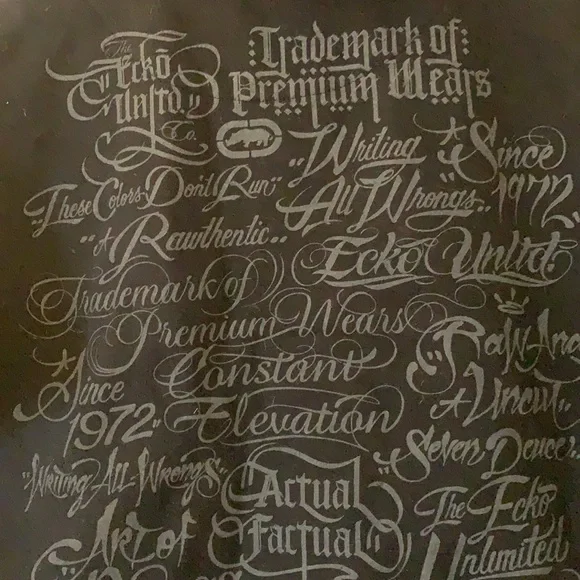 The
Ecko
"Unltd."
Co.
Trademark of:
Premium Wears
"Writing
All Wrongs..
"Since
1972"
"These Colors Don't Run"
"A Rawthentic..
Ecko Unltd.
Trademark of
Premium Wears
Since
1972"
Constant
Elevation
"Raw And
A Uncut..
"Seven Deuce"
"Writing-All-Wrongs"
"Actual
Factual"
The Ecko
Unlimited
Art of